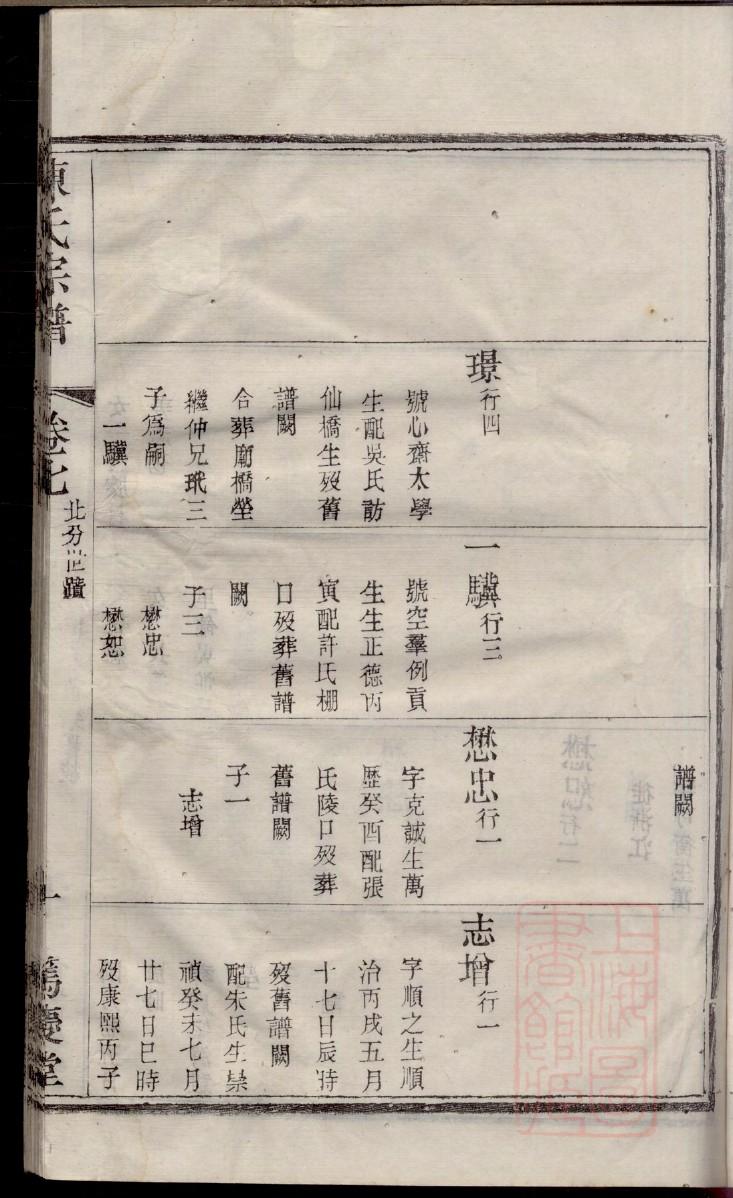 譜闕
璟行四
號心齋太學
生配吳氏訪
仙橋生歿舊
譜闕
合葬廟橋塋
繼仲兄珴三
子為嗣
一驥
一驥行三
號空羣例貢
生生正德丙
寅配許氏棚
口歿葬舊譜
闕
子三
懋忠
懋恕
懋忠行一
字克誠生萬
歷癸酉配張
氏陵口歿葬
舊譜闕
子一
志增
志增行一
字順之生順
治丙戌五月
十七日辰時
歿舊譜闕
配朱氏生崇
禎癸未七月
廿七日巳時
歿康熙丙子
陳氏宗譜
卷七
北分世蹟
一
篤慶堂
上海圖書館藏